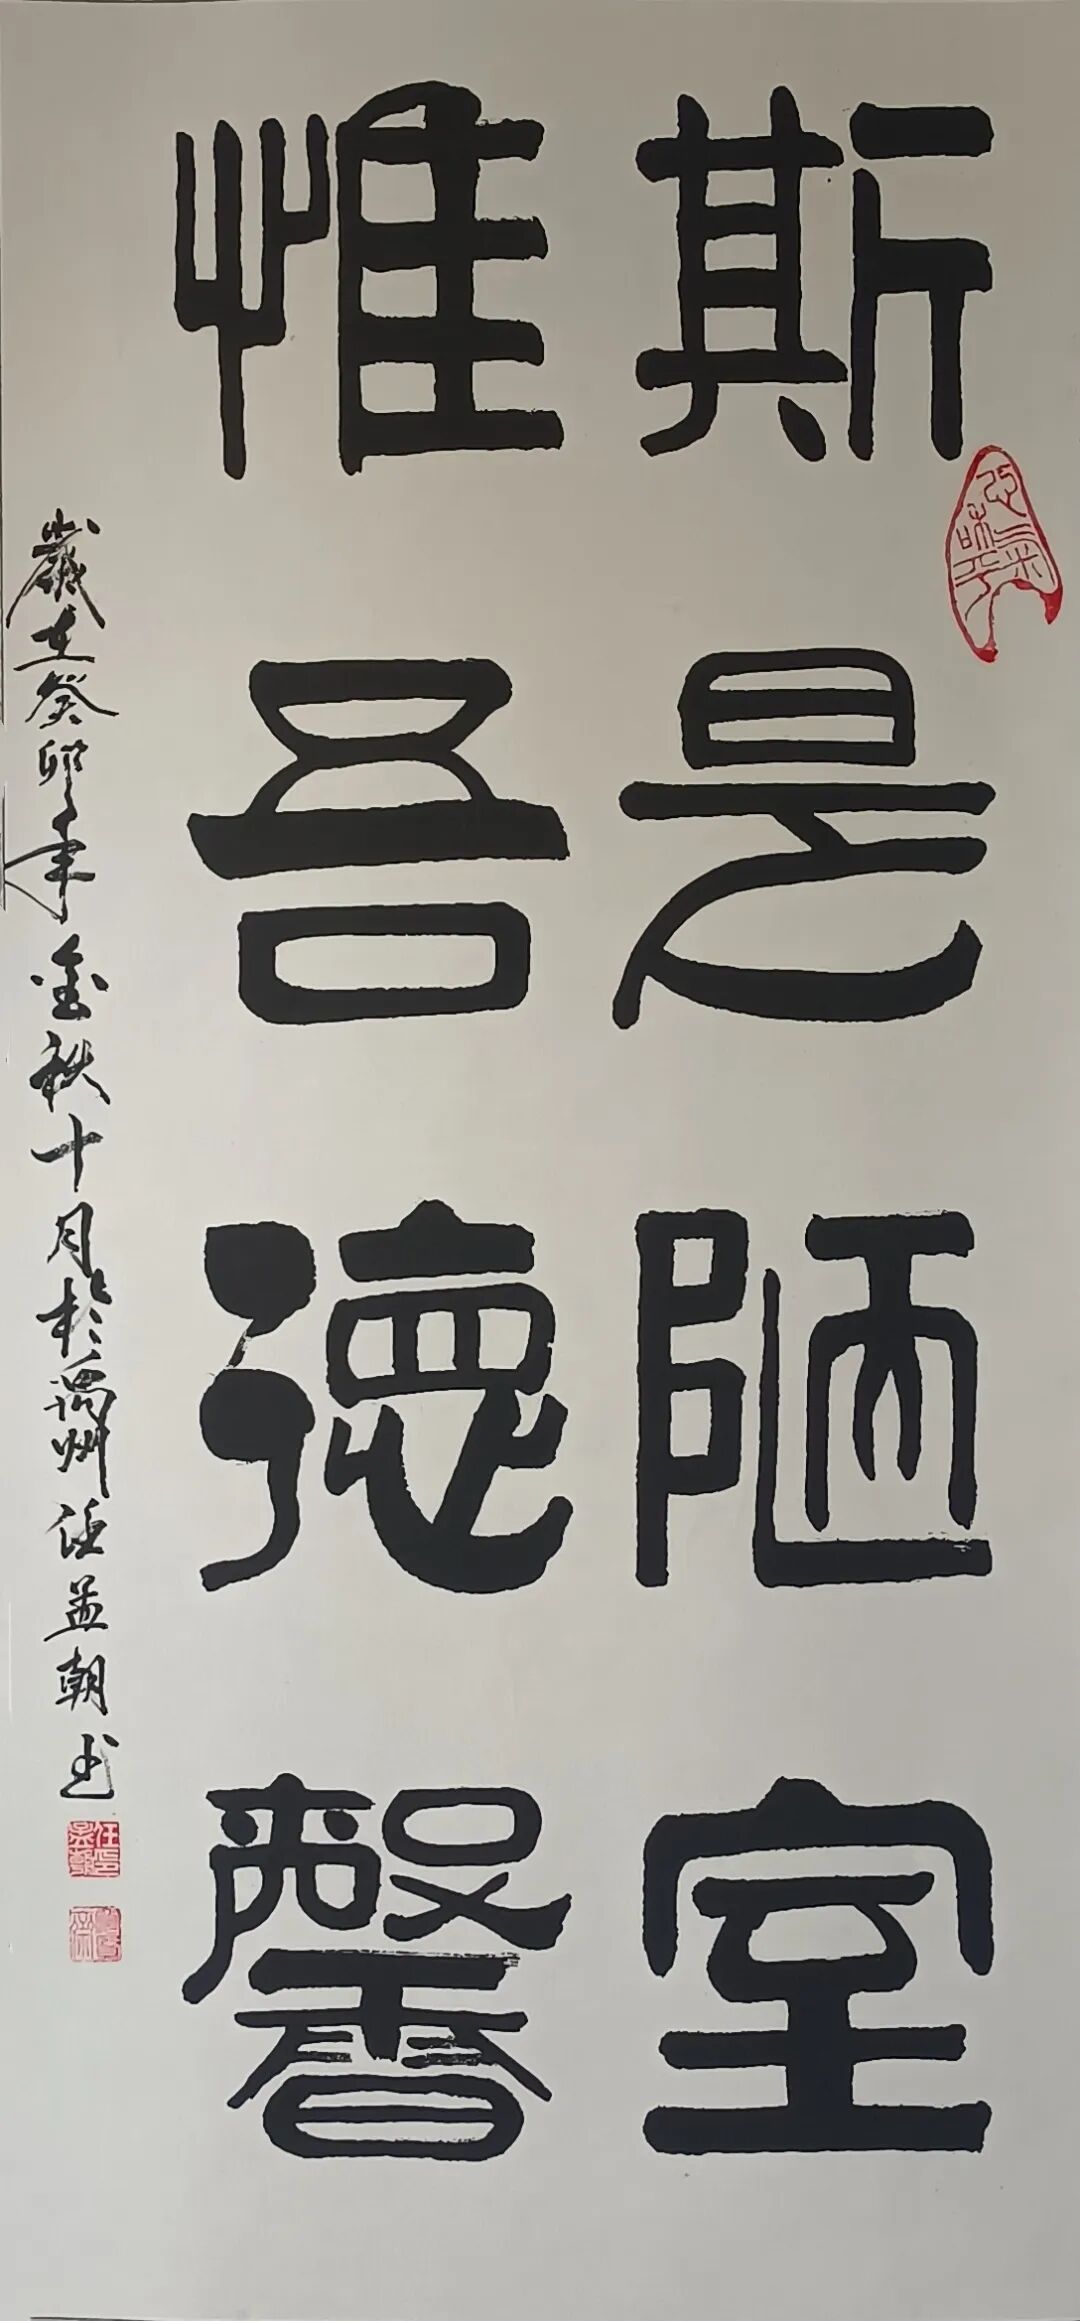 斯是陋室
惟吾德馨
歲在癸卯年金秋十月於禹州任孟朝书